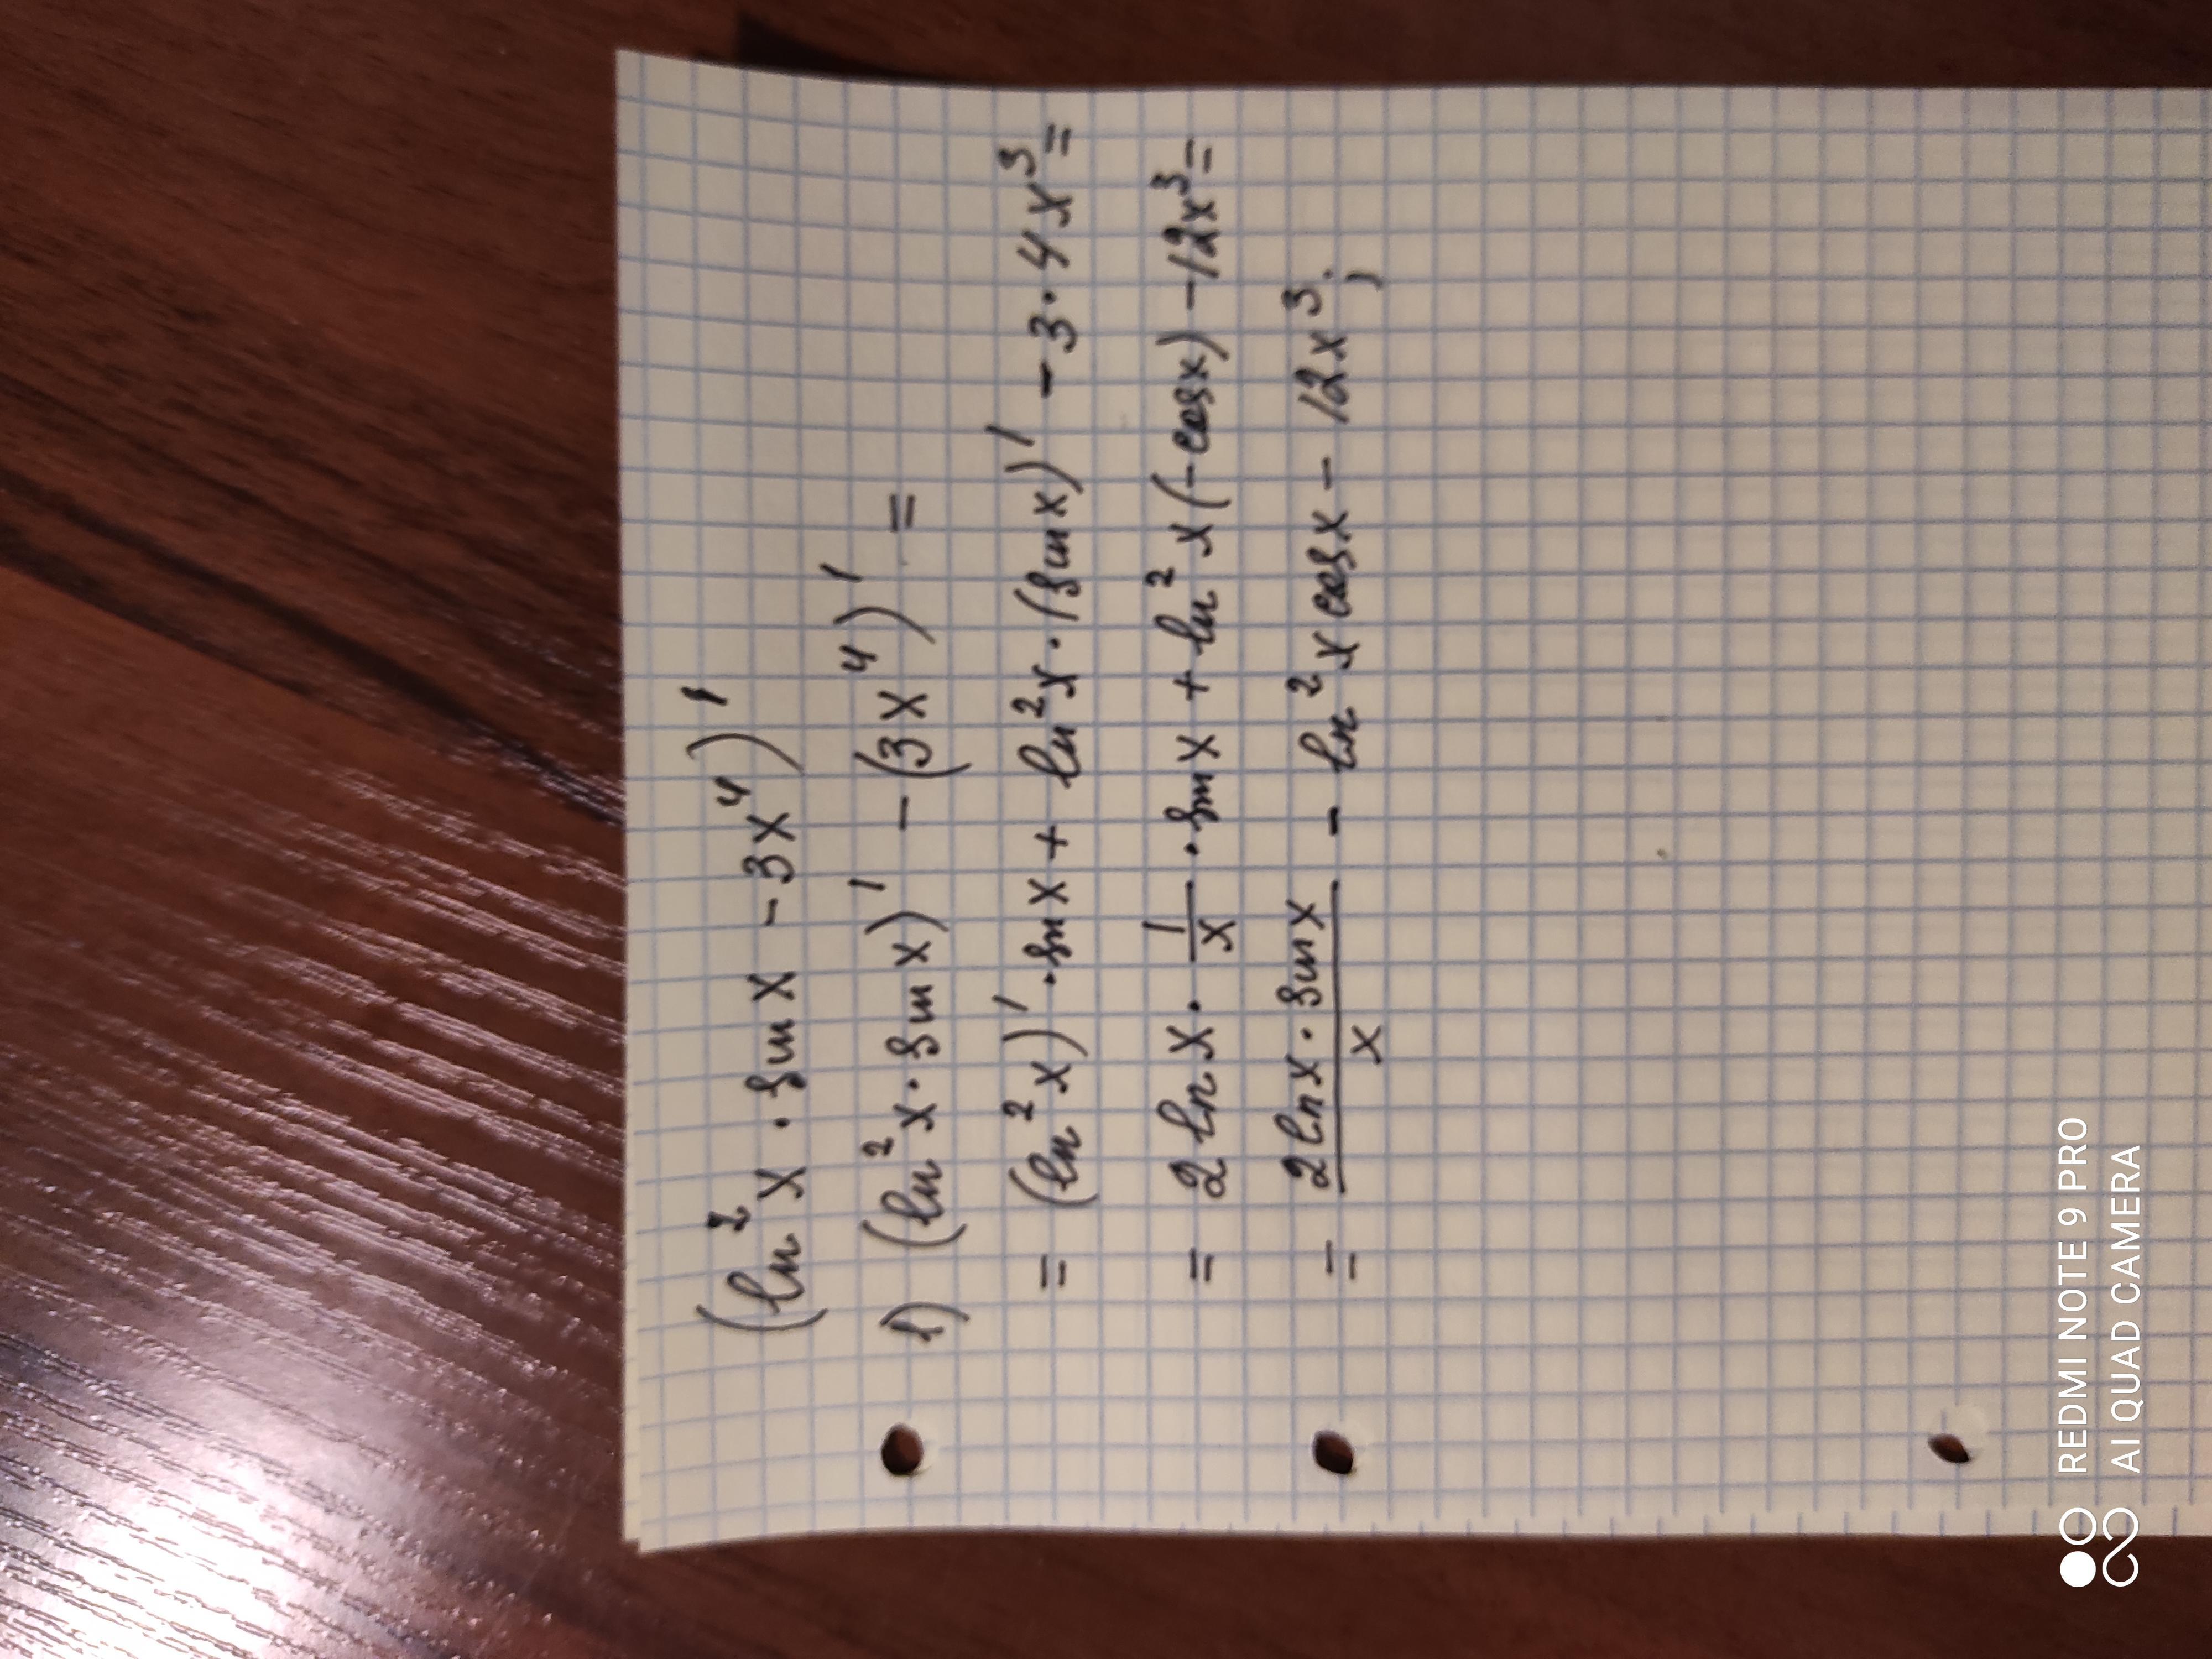 (ln²x · sin x - 3x⁴)'
1) (ln²x · sin x)' - (3x⁴)' =
= (ln²x)' · sin x + ln²x · (sin x)' - 3 · 4x³ =
= 2 ln x · 1/x · sin x + ln²x (-cos x) - 12x³ =
= 2 ln x · sin x / x - ln²x cos x - 12x³;
REDMI NOTE 9 PRO
AI QUAD CAMERA